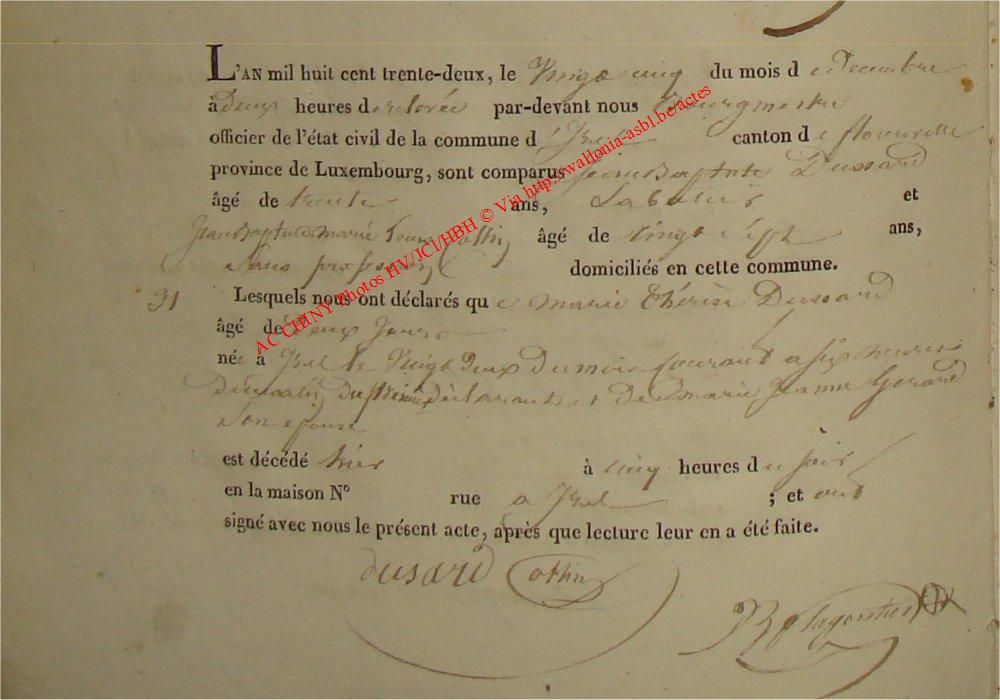 L'AN mil huit cent trente-deux, le Vingt cinq du mois de Decembre
à deux heures de relevée par-devant nous Bourgmestre
officier de l'état civil de la commune d'Izel canton de florenville
province de Luxembourg, sont comparus Jean Baptiste Dussard
âgé de trente ans, Laboureur et
Jean Baptiste marie Louis Collin âgé de vingt sept ans,
sans profession domiciliés en cette commune.
31 Lesquels nous ont déclarés que marie thérèse Dussard
âgé de Deux Jours
née à Izel le Vingt Deux du mois courant a six heures
Du matin Du premier déclarant et De marie Jeanne Gerard
son epouse
est décédé hier à cinq heures du soir
en la maison N° rue a Izel ; et ont
signé avec nous le présent acte, après que lecture leur en a été faite.
dusard Collin
AC CHINY Photos HV/JCl/HBH © Via http://wallonia-asbl.be/actes